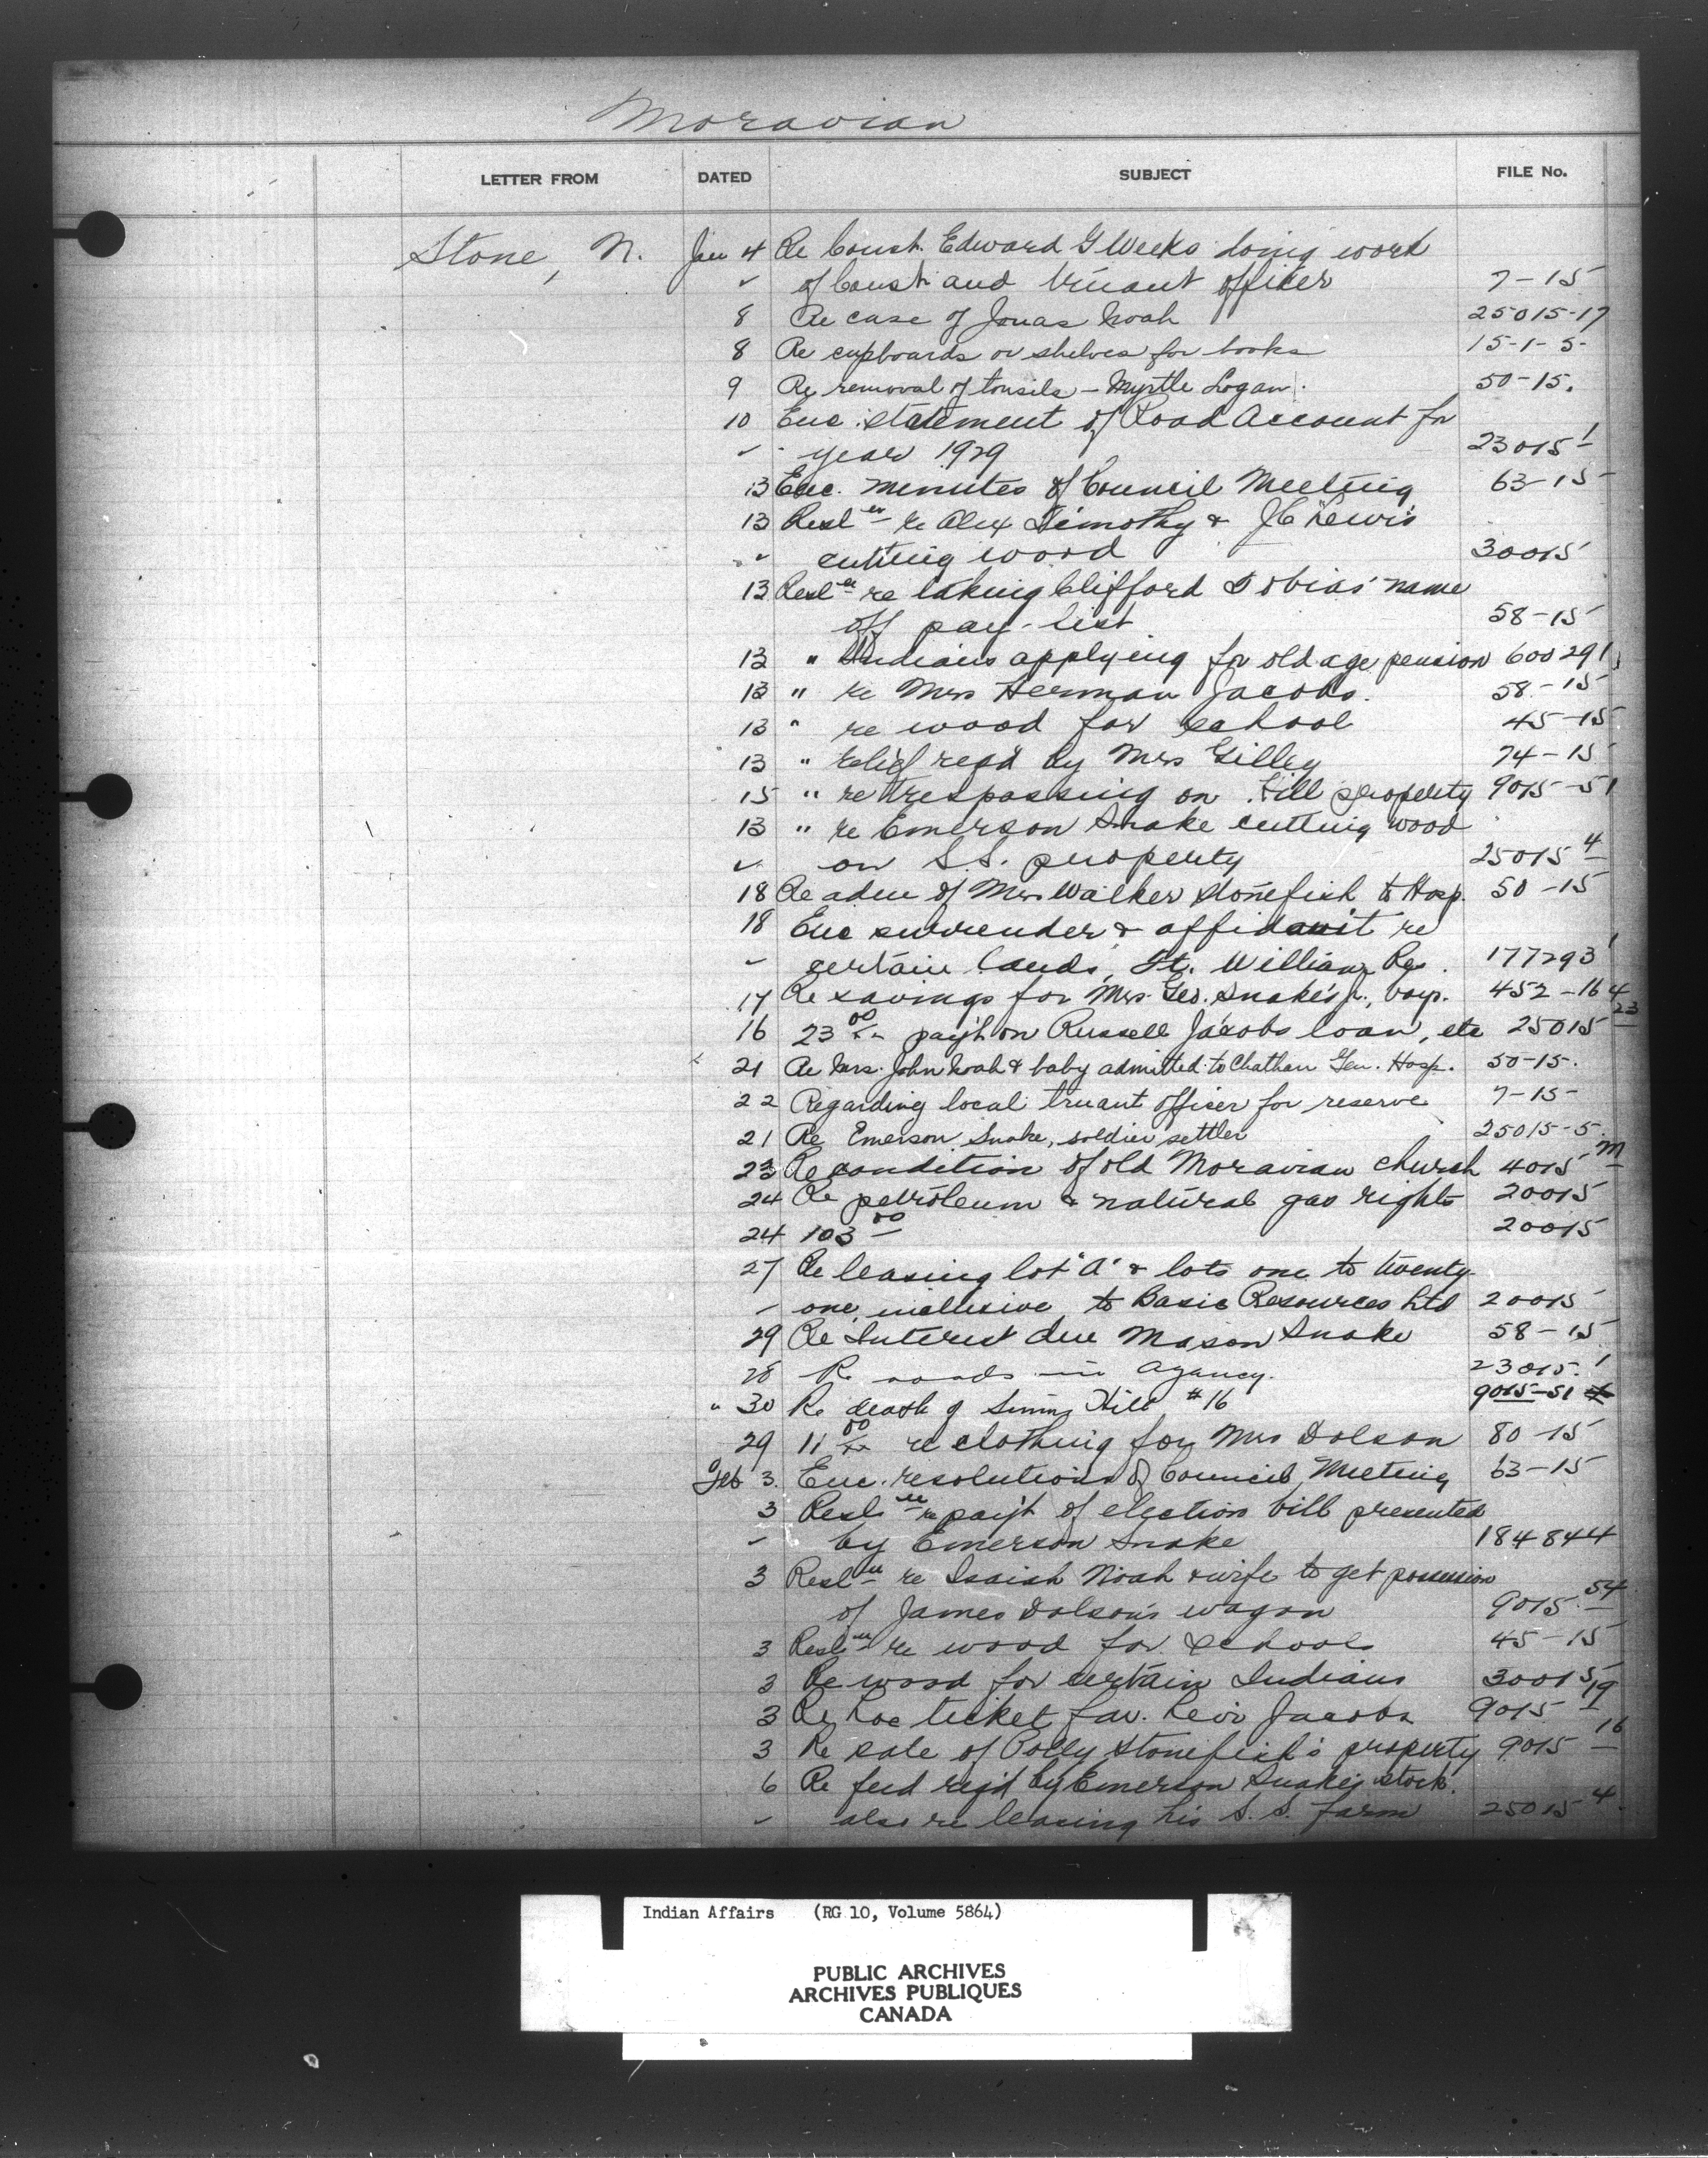 Moravian
LETTER FROM DATED SUBJECT FILE No.
Stone, N. Jan 4 Re Const. Edward G Weeks doing work
" of Const. and truant officer 7-15
8 Re case of Jonas Noah 25015-17
8 Re cupboards or shelves for books 15-1-5-
9 Re removal of tonsils - Myrtle Logan. 50-15.
10 Enc. statement of Road Account for
" year 1929 23015 1
13 Enc. minutes of Council Meeting 63-15
13 Resl en re Alex Timothy & J C Lewis
" cutting wood 30015
13 Resl en re taking Clifford Tobias' name
off pay-list 58-15
13 " Indians applying for old age pension 600291
13 " re Mrs Herman Jacobs. 58-15
13 " re wood for school 45-15
13 " relief reqd by Mrs Gilley 74-15
15 " re trespassing on Hill property 9015-51
13 " re Emerson Snake cutting wood
" on S.S. property 25015 4
18 Re adm of Mrs Walker Stonefish to Hosp. 50-15
18 Enc surrender & affidavit re
" certain lands, Ft. William Res. 177293 1
17 Re savings for Mrs Geo. Snake's jr., 452-16 4
16 23 00/xx pay't on Russell Jacobs loan, etc 25015 23
21 Re Mrs. John Noah & baby admitted to Chatham Gen. Hosp. 50-15.
22 Regarding local truant officer for reserve 7-15-
21 Re Emerson Snake, soldier settler 25015-5.
23 Re condition of old Moravian church 4015 M
24 Re petroleum & natural gas rights 20015
24 103 00 20015
27 Re leasing lot "A" & lots one to twenty-
" one, inclusive, to Basic Resources Ltd 20015
29 Re Interest due Mason Snake 58-15
28 Re roads in agency. 23015.1
" 30 Re death of Hill #16 9015-51
29 11 00/xx re clothing for Mrs Dolson 80-15
Feb 3. Enc. resolutions of Council Meeting 63-15
3 Resl en re pay't of election bill presented
" by Emerson Snake 184844
3 Resl en re Isaiah Noah & wife to get possession
of James Dolson's wagon 9015.54
3 Resl en re wood for schools 45-15
3 Re wood for certain Indians 30015
3 Re Loc ticket fav. Levi Jacobs 9015 19
3 Re sale of Polly Stonefish's property 9015 16
6 Re feed req'd by Emerson Snake's stock.
" also re leasing his S.S. farm 25015 4
Indian Affairs (RG 10, Volume 5864)
PUBLIC ARCHIVES
ARCHIVES PUBLIQUES
CANADA